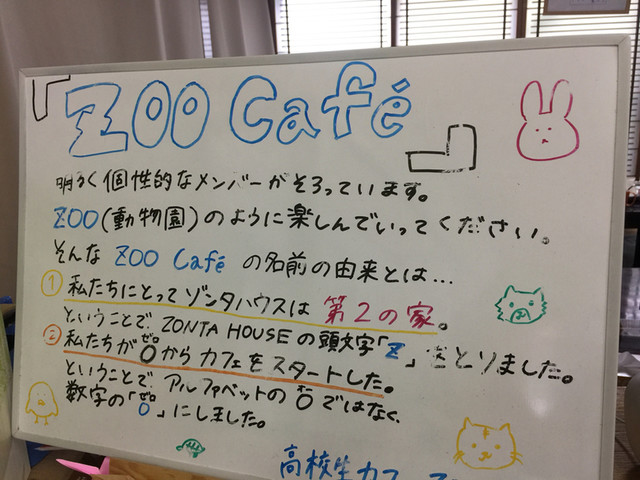 「ZOO Café」
明るく個性的なメンバーがそろっています。
ZOO(動物園)のように楽しんでいってください。
そんな ZOO Café の名前の由来とは…
① 私たちにとってゾンタハウスは 第2の家。
ということで ZONTA HOUSEの頭文字「Z」をとりました。
② 私たちが0からカフェをスタートした。
ゼロ
ということで アルファベットの Oではなく、
オー
数字の「0」にしました。
ゼロ
高校生カフェ